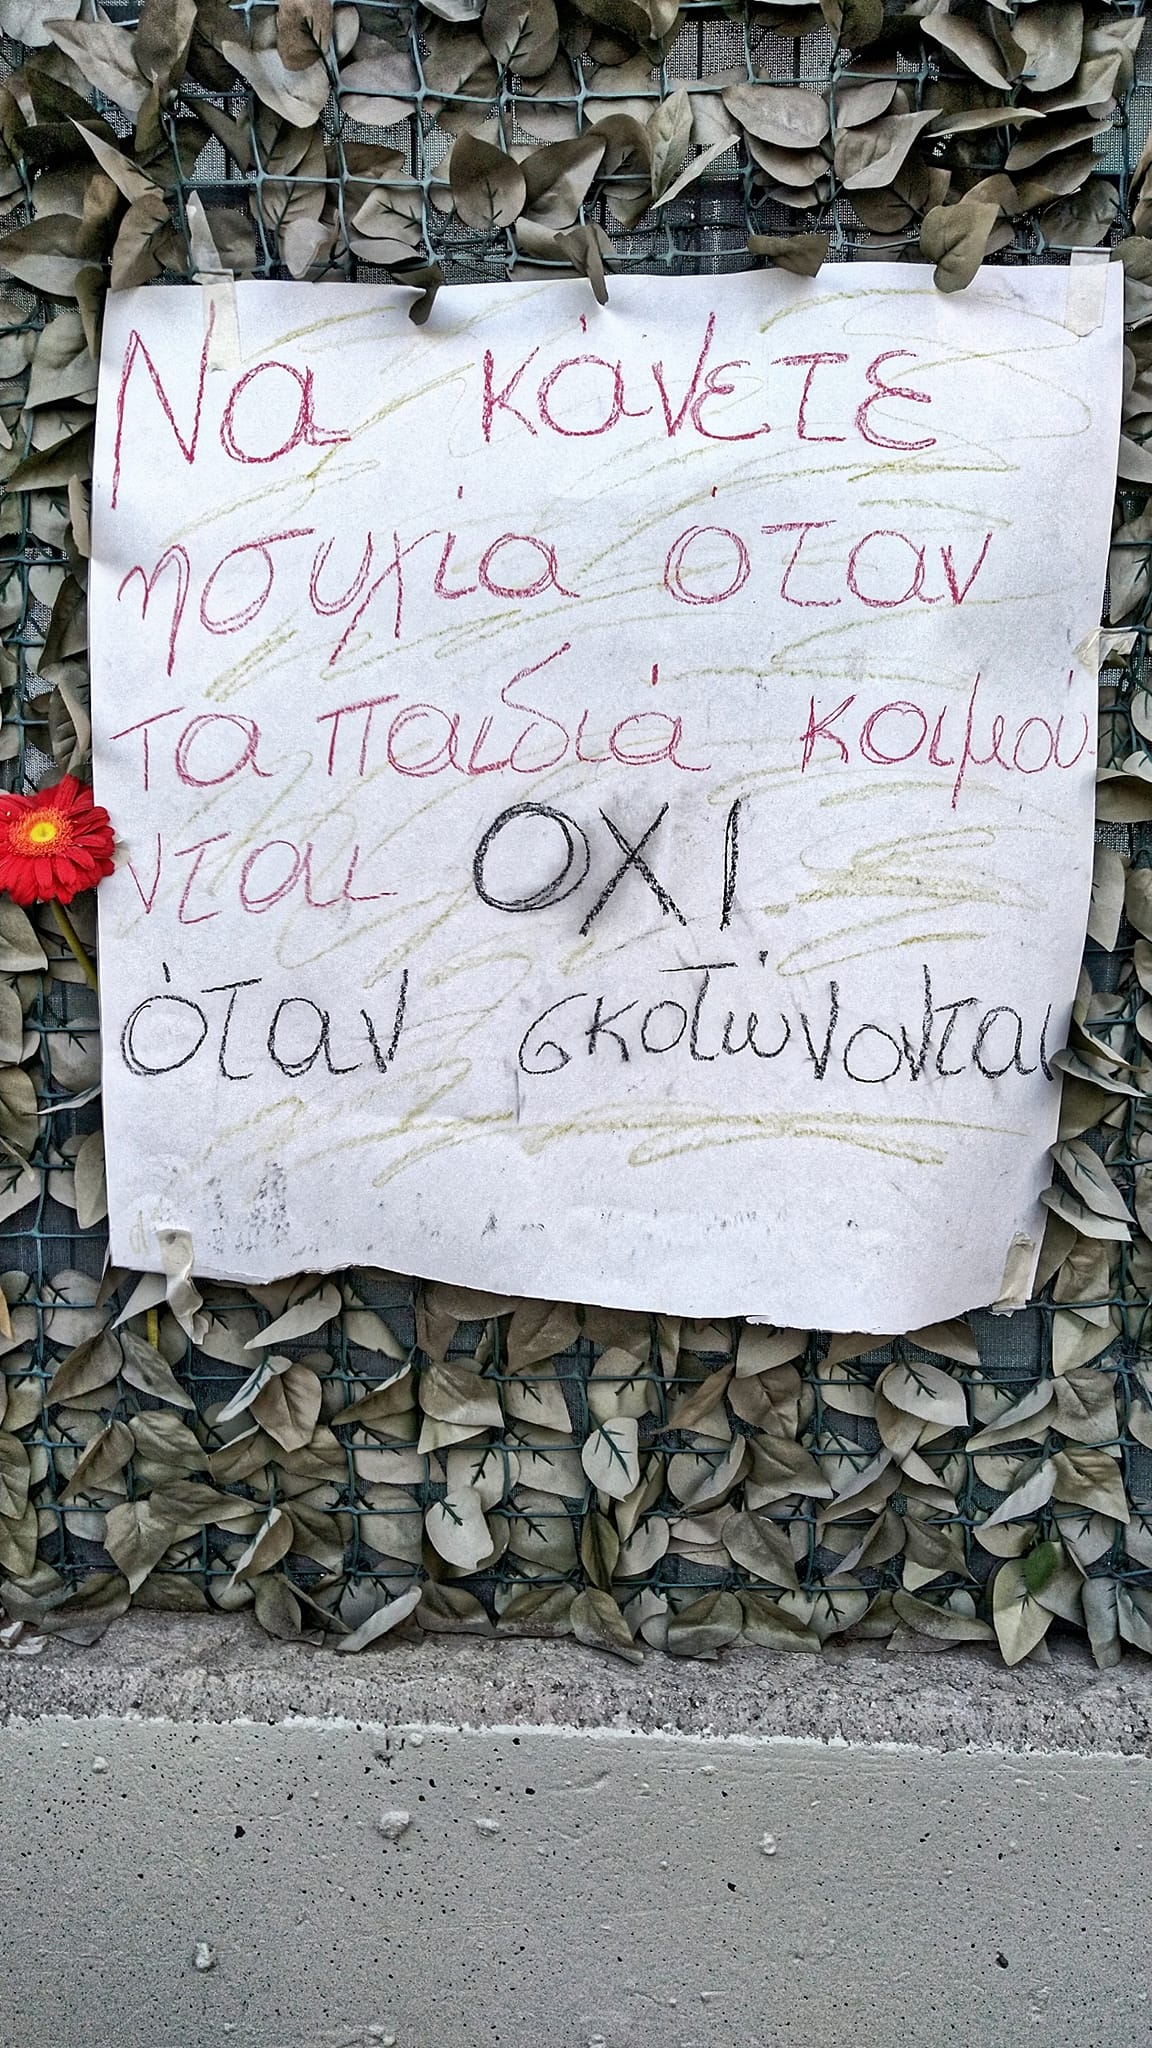 Να κάνετε
ησυχία όταν
τα παιδιά κοιμού
νται ΟΧΙ
όταν σκοτώνονται